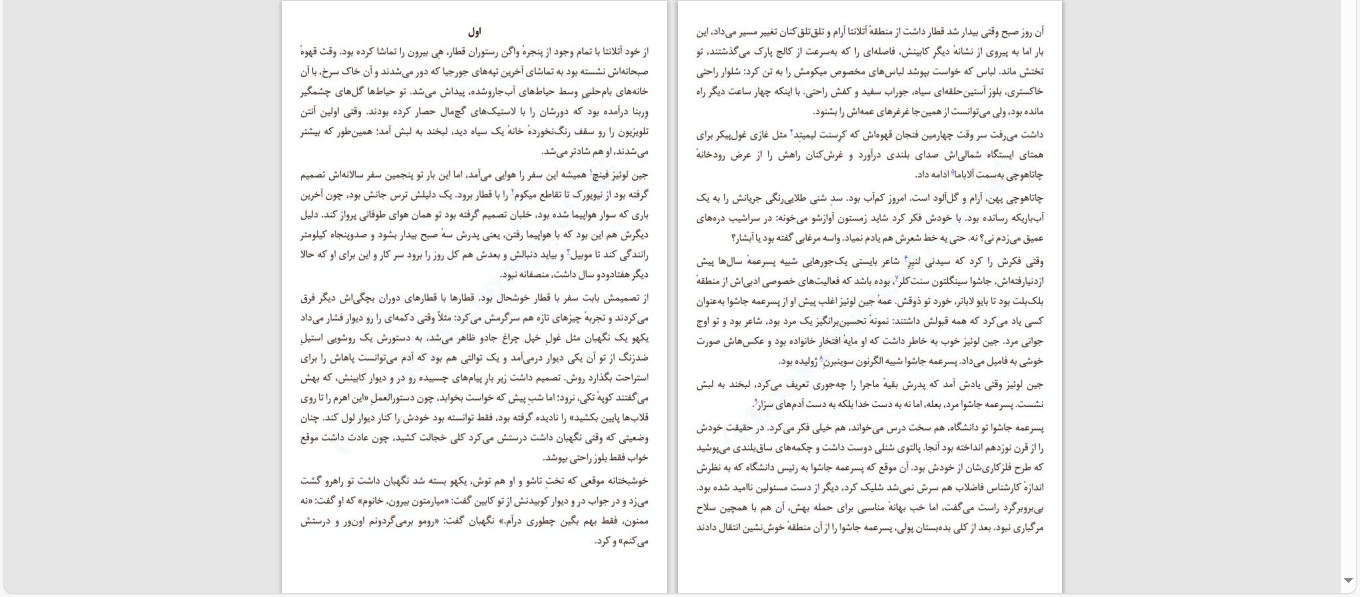 اول
از خود آتلانتا با تمام وجود از پنجرهٔ واگن رستوران قطار، هی بیرون را تماشا کرده بود. وقت قهوهٔ
صبحانه‌اش نشسته بود به تماشای آخرین تپه‌های جورجیا که دور می‌شدند و آن خاک سرخ، با آن
خانه‌های بام‌حلبی وسط حیاط‌های آب‌جاروشده، پیداش می‌شد. تو حیاط‌ها گل‌های چشمگیر
وربنا درآمده بود که دورشان را با لاستیک‌های گچمال حصار کرده بودند. وقتی اولین آنتن
تلویزیون را رو سقف رنگ‌نخوردهٔ خانهٔ یک سیاه دید، لبخند به لبش آمد؛ همین‌طور که بیشتر
می‌شدند، او هم شادتر می‌شد.
جین لوئیز فینچ۱ همیشه این سفر را هوایی می‌آمد، اما این بار تو پنجمین سفر سالانه‌اش تصمیم
گرفته بود از نیویورک تا تقاطع میکوم۲ را با قطار برود. یک دلیلش ترس جانش بود، چون آخرین
باری که سوار هواپیما شده بود، خلبان تصمیم گرفته بود تو همان هوای طوفانی پرواز کند. دلیل
دیگرش هم این بود که با هواپیما رفتن، یعنی پدرش سهٔ صبح بیدار بشود و صدوپنجاه کیلومتر
رانندگی کند تا موبیل۳ و بیاید دنبالش و بعدش هم کل روز را برود سر کار و این برای او که حالا
دیگر هفتادودو سال داشت، منصفانه نبود.
از تصمیمش بابت سفر با قطار خوشحال بود. قطارها با قطارهای دوران بچگی‌اش دیگر فرق
می‌کردند و تجربهٔ چیزهای تازه هم سرگرمش می‌کرد: مثلاً وقتی دکمه‌ای را رو دیوار فشار می‌داد
یکهو یک نگهبان مثل غول خپل چراغ جادو ظاهر می‌شد، به دستورش یک روشویی استیلِ
ضدزنگ از تو آن یکی دیوار درمی‌آمد و یک توالتی هم بود که آدم می‌توانست پاهاش را برای
استراحت بگذارد روش. تصمیم داشت زیر بار پیام‌های چسبیده رو در و دیوار کابینش، که بهش
می‌گفتند کوپهٔ تکی، نرود؛ اما شب پیش که خواست بخوابد، چون دستورالعملِ «این اهرم را تا روی
قلاب‌ها پایین بکشید» را نادیده گرفته بود، فقط توانسته بود خودش را کنار دیوار لول کند. چنان
وضعیتی که وقتی نگهبان داشت درستش می‌کرد کلی خجالت کشید، چون عادت داشت موقع
خواب فقط بلوز راحتی بپوشد.
خوشبختانه موقعی که تخت تاشو و او هم توش، یکهو بسته شد نگهبان داشت تو راهرو گشت
می‌زد و در جواب در و دیوار کوبیدنش از تو کابین گفت: «میارمتون بیرون، خانوم» که او گفت: «نه
ممنون، فقط بهم بگین چطوری درآم.» نگهبان گفت: «رومو برمی‌گردونم اون‌ور و درستش
می‌کنم» و کرد.
آن روز صبح وقتی بیدار شد قطار داشت از منطقهٔ آتلانتا آرام و تلق‌تلق‌کنان تغییر مسیر می‌داد، این
بار اما به پیروی از نشانهٔ دیگرِ کابینش، فاصله‌ای را که به‌سرعت از کالج پارک می‌گذشتند، تو
تختش ماند. لباس که خواست بپوشد لباس‌های مخصوص میکومش را به تن کرد: شلوار راحتی
خاکستری، بلوز آستین‌حلقه‌ای سیاه، جوراب سفید و کفش راحتی. با اینکه چهار ساعت دیگر راه
مانده بود، ولی می‌توانست از همین‌جا غرغرهای عمه‌اش را بشنود.
داشت می‌رفت سر وقت چهارمین فنجان قهوه‌اش که کرسنت لیمیتد۴ مثل غازی غول‌پیکر برای
همتای ایستگاه شمالی‌اش صدای بلندی درآورد و غرش‌کنان راهش را از عرض رودخانهٔ
چاتاهوچی به‌سمت آلاباما۵ ادامه داد.
چاتاهوچی پهن، آرام و گل‌آلود است. امروز کم‌آب بود. سد شنی طلایی‌رنگی جریانش را به یک
آب‌باریکه رسانده بود. با خودش فکر کرد شاید زمستون آوازشو می‌خونه: در سراشیب دره‌های
عمیق می‌زدم نی؟ نه. حتی یه خط شعرش هم یادم نمیاد. واسه مرغابی گفته بود یا آبشار؟
وقتی فکرش را کرد که سیدنی لنیر۶ شاعر بایستی یک‌جورهایی شبیه پسرعمهٔ سال‌ها پیش
ازدنیارفته‌اش، جاشوا سینگلتون سنت‌کلر۷، بوده باشد که فعالیت‌های خصوصی ادبی‌اش از منطقهٔ
بلک‌بلت بود تا بایو لاباتر، خورد تو ذوقش. عمهٔ جین لوئیز اغلب پیش او از پسرعمه جاشوا به‌عنوان
کسی یاد می‌کرد که همه قبولش داشتند: نمونهٔ تحسین‌برانگیز یک مرد بود، شاعر بود و تو اوج
جوانی مرد. جین لوئیز خوب به خاطر داشت که او مایهٔ افتخار خانواده بود و عکس‌هاش صورت
خوشی به فامیل می‌داد. پسرعمه جاشوا شبیه الگرنون سوینبرن۸ ژولیده بود.
جین لوئیز وقتی یادش آمد که پدرش بقیهٔ ماجرا را چه‌جوری تعریف می‌کرد، لبخند به لبش
نشست. پسرعمه جاشوا مرد، بعله، اما نه به دست خدا بلکه به دست آدم‌های سزار۹.
پسرعمه جاشوا تو دانشگاه، هم سخت درس می‌خواند، هم خیلی فکر می‌کرد. در حقیقت خودش
را از قرن نوزدهم انداخته بود آنجا. پالتوی شنلی دوست داشت و چکمه‌های ساق‌بلندی می‌پوشید
که طرح فلزکاری‌شان از خودش بود. آن موقع که پسرعمه جاشوا به رئیس دانشگاه که به نظرش
اندازهٔ کارشناس فاضلاب هم سرش نمی‌شد شلیک کرد، دیگر از دست مسئولین ناامید شده بود.
بی‌بروبرگرد راست می‌گفت، اما خب بهانهٔ مناسبی برای حمله بهش، آن هم با همچین سلاح
مرگباری نبود. بعد از کلی بده‌بستان پولی، پسرعمه جاشوا را از آن منطقهٔ خوش‌نشین انتقال دادند